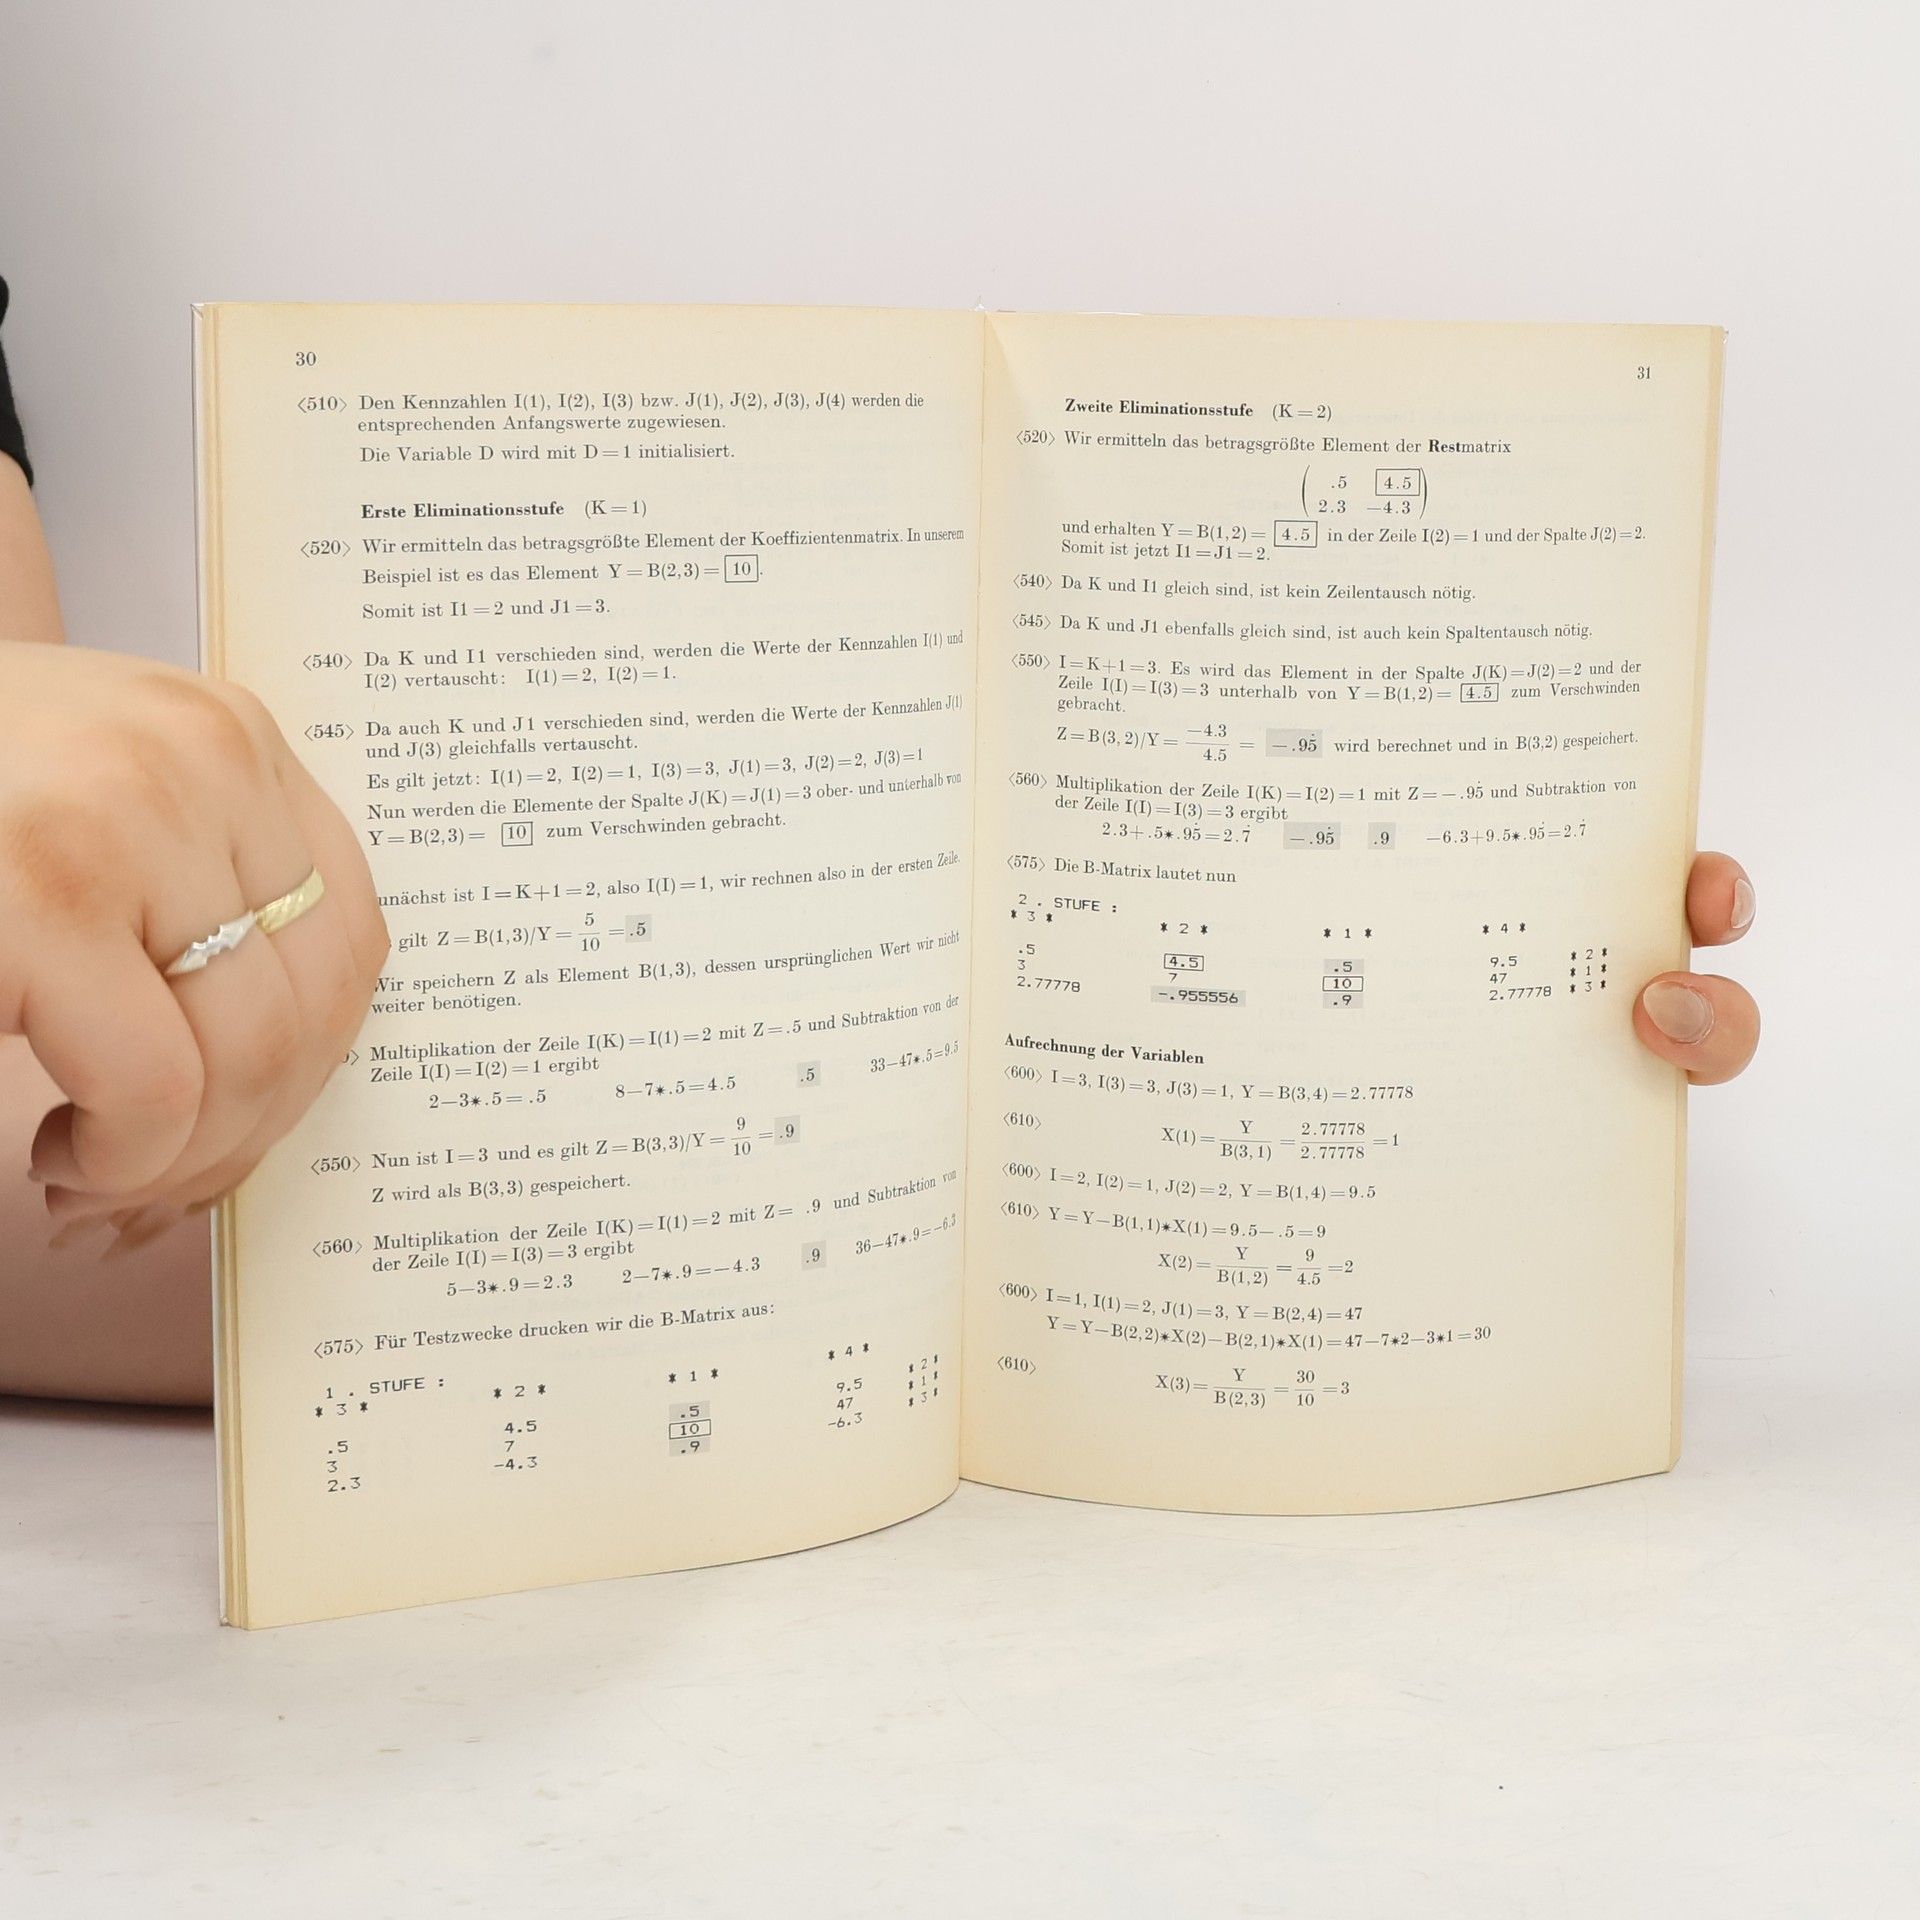 30
⟨510⟩ Den Kennzahlen I(1), I(2), I(3) bzw. J(1), J(2), J(3), J(4) werden die
entsprechenden Anfangswerte zugewiesen.
Die Variable D wird mit D=1 initialisiert.
Erste Eliminationsstufe (K=1)
⟨520⟩ Wir ermitteln das betragsgrößte Element der Koeffizientenmatrix. In unserem
Beispiel ist es das Element Y=B(2,3)= 10.
Somit ist I1=2 und J1=3.
⟨540⟩ Da K und I1 verschieden sind, werden die Werte der Kennzahlen I(1) und
I(2) vertauscht: I(1)=2, I(2)=1.
⟨545⟩ Da auch K und J1 verschieden sind, werden die Werte der Kennzahlen J(1)
und J(3) gleichfalls vertauscht.
Es gilt jetzt: I(1)=2, I(2)=1, I(3)=3, J(1)=3, J(2)=2, J(3)=1
Nun werden die Elemente der Spalte J(K)=J(1)=3 ober- und unterhalb von
Y=B(2,3)= 10 zum Verschwinden gebracht.
unächst ist I=K+1=2, also I(I)=1, wir rechnen also in der ersten Zeile.
gilt Z=B(1,3)/Y= 5/10 =.5
Wir speichern Z als Element B(1,3), dessen ursprünglichen Wert wir nicht
weiter benötigen.
⟩ Multiplikation der Zeile I(K)=I(1)=2 mit Z=.5 und Subtraktion von der
Zeile I(I)=I(2)=1 ergibt
2−3*.5=.5 8−7*.5=4.5 .5 33−47*.5=9.5
⟨550⟩ Nun ist I=3 und es gilt Z=B(3,3)/Y= 9/10 =.9
Z wird als B(3,3) gespeichert.
⟨560⟩ Multiplikation der Zeile I(K)=I(1)=2 mit Z= .9 und Subtraktion von
der Zeile I(I)=I(3)=3 ergibt
5−3*.9=2.3 2−7*.9=−4.3 .9 36−47*.9=−6.3
⟨575⟩ Für Testzwecke drucken wir die B-Matrix aus:
1 . STUFE :
* 3 * * 2 * * 1 * * 4 *
.5 4.5 .5 9.5 * 2 *
3 7 10 47 * 1 *
2.3 -4.3 .9 -6.3 * 3 *
31
Zweite Eliminationsstufe (K=2)
⟨520⟩ Wir ermitteln das betragsgrößte Element der Restmatrix
.5 4.5
2.3 −4.3
und erhalten Y=B(1,2)= 4.5 in der Zeile I(2)=1 und der Spalte J(2)=2.
Somit ist jetzt I1=J1=2.
⟨540⟩ Da K und I1 gleich sind, ist kein Zeilentausch nötig.
⟨545⟩ Da K und J1 ebenfalls gleich sind, ist auch kein Spaltentausch nötig.
⟨550⟩ I=K+1=3. Es wird das Element in der Spalte J(K)=J(2)=2 und der
Zeile I(I)=I(3)=3 unterhalb von Y=B(1,2)= 4.5 zum Verschwinden
gebracht.
Z=B(3,2)/Y= −4.3/4.5 = −.95̇ wird berechnet und in B(3,2) gespeichert.
⟨560⟩ Multiplikation der Zeile I(K)=I(2)=1 mit Z=−.95̇ und Subtraktion von
der Zeile I(I)=I(3)=3 ergibt
2.3+.5*.95̇=2.7̇ −.95̇ .9 −6.3+9.5*.95̇=2.7̇
⟨575⟩ Die B-Matrix lautet nun
2 . STUFE :
* 3 * * 2 * * 1 * * 4 *
.5 4.5 .5 9.5 * 2 *
3 7 10 47 * 1 *
2.77778 -.955556 .9 2.77778 * 3 *
Aufrechnung der Variablen
⟨600⟩ I=3, I(3)=3, J(3)=1, Y=B(3,4)=2.77778
⟨610⟩ X(1)= Y/B(3,1) = 2.77778/2.77778 =1
⟨600⟩ I=2, I(2)=1, J(2)=2, Y=B(1,4)=9.5
⟨610⟩ Y=Y−B(1,1)*X(1)=9.5−.5=9
X(2)= Y/B(1,2) = 9/4.5 =2
⟨600⟩ I=1, I(1)=2, J(1)=3, Y=B(2,4)=47
Y=Y−B(2,2)*X(2)−B(2,1)*X(1)=47−7*2−3*1=30
⟨610⟩ X(3)= Y/B(2,3) = 30/10 =3